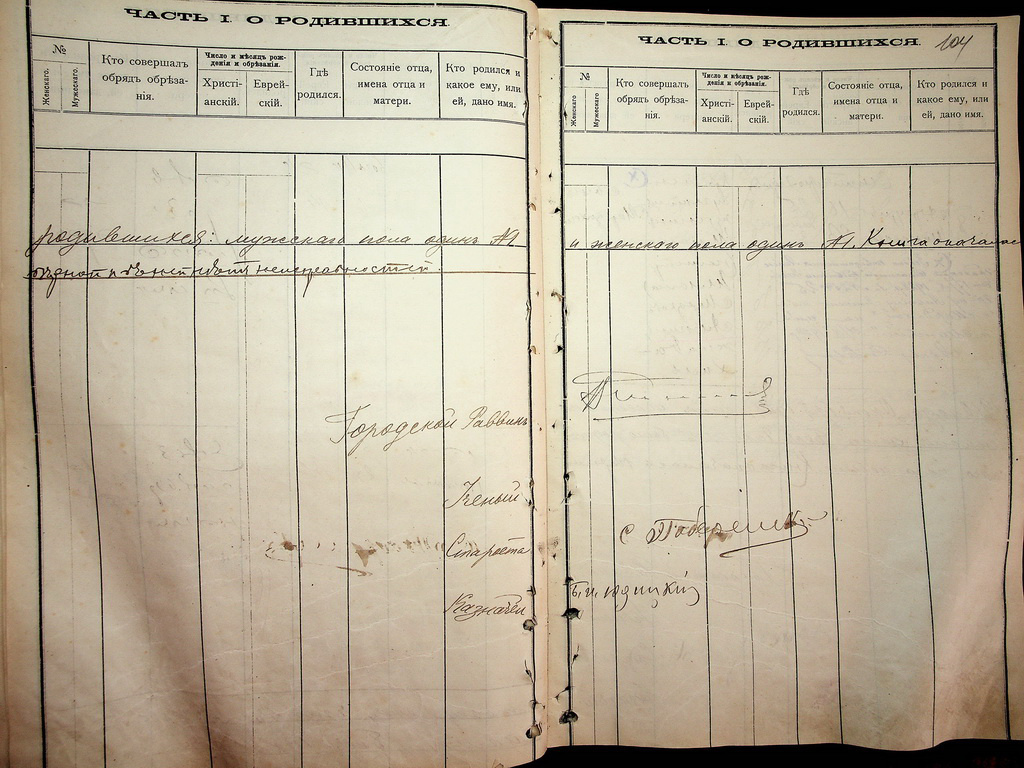 ЧАСТЬ I. О РОДИВШИХСЯ.
№
Женскаго.
Мужескаго.
Кто совершалъ обрядъ обрѣзанія.
Число и мѣсяцъ рожденія и обрѣзанія.
Христіанскій.
Еврейскій.
Гдѣ родился.
Состояніе отца, имена отца и матери.
Кто родился и какое ему, или ей, дано имя.
родившихся: мужскаго пола одинъ №1
неисправностей.
Городской Раввинъ
Ученый
Староста
Казначей
ЧАСТЬ I. О РОДИВШИХСЯ.
104
№
Женскаго
Мужескаго
Кто совершалъ обрядъ обрѣзанія.
Число и мѣсяцъ рожденія и обрѣзанія.
Христіанскій.
Еврейскій.
Гдѣ родился.
Состояніе отца, имена отца и матери.
Кто родился и какое ему, или ей, дано имя.
и женского пола одинъ №1. Книга